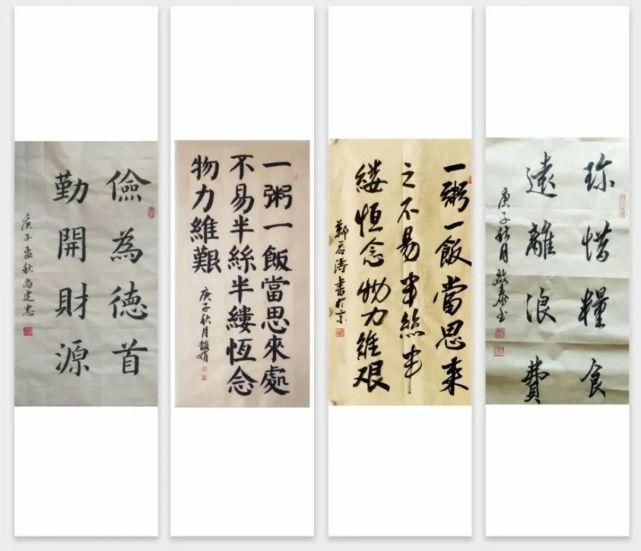 儉為德首
勤開財源
庚子孟秋尚建忠
一粥一飯當思來處
不易半絲半縷恆念
物力維艱
庚子秋月
一粥一飯當思来
之不易半絲半
縷恒念物力維艰
書於京
珍惜糧食
遠離浪費
庚子秋月